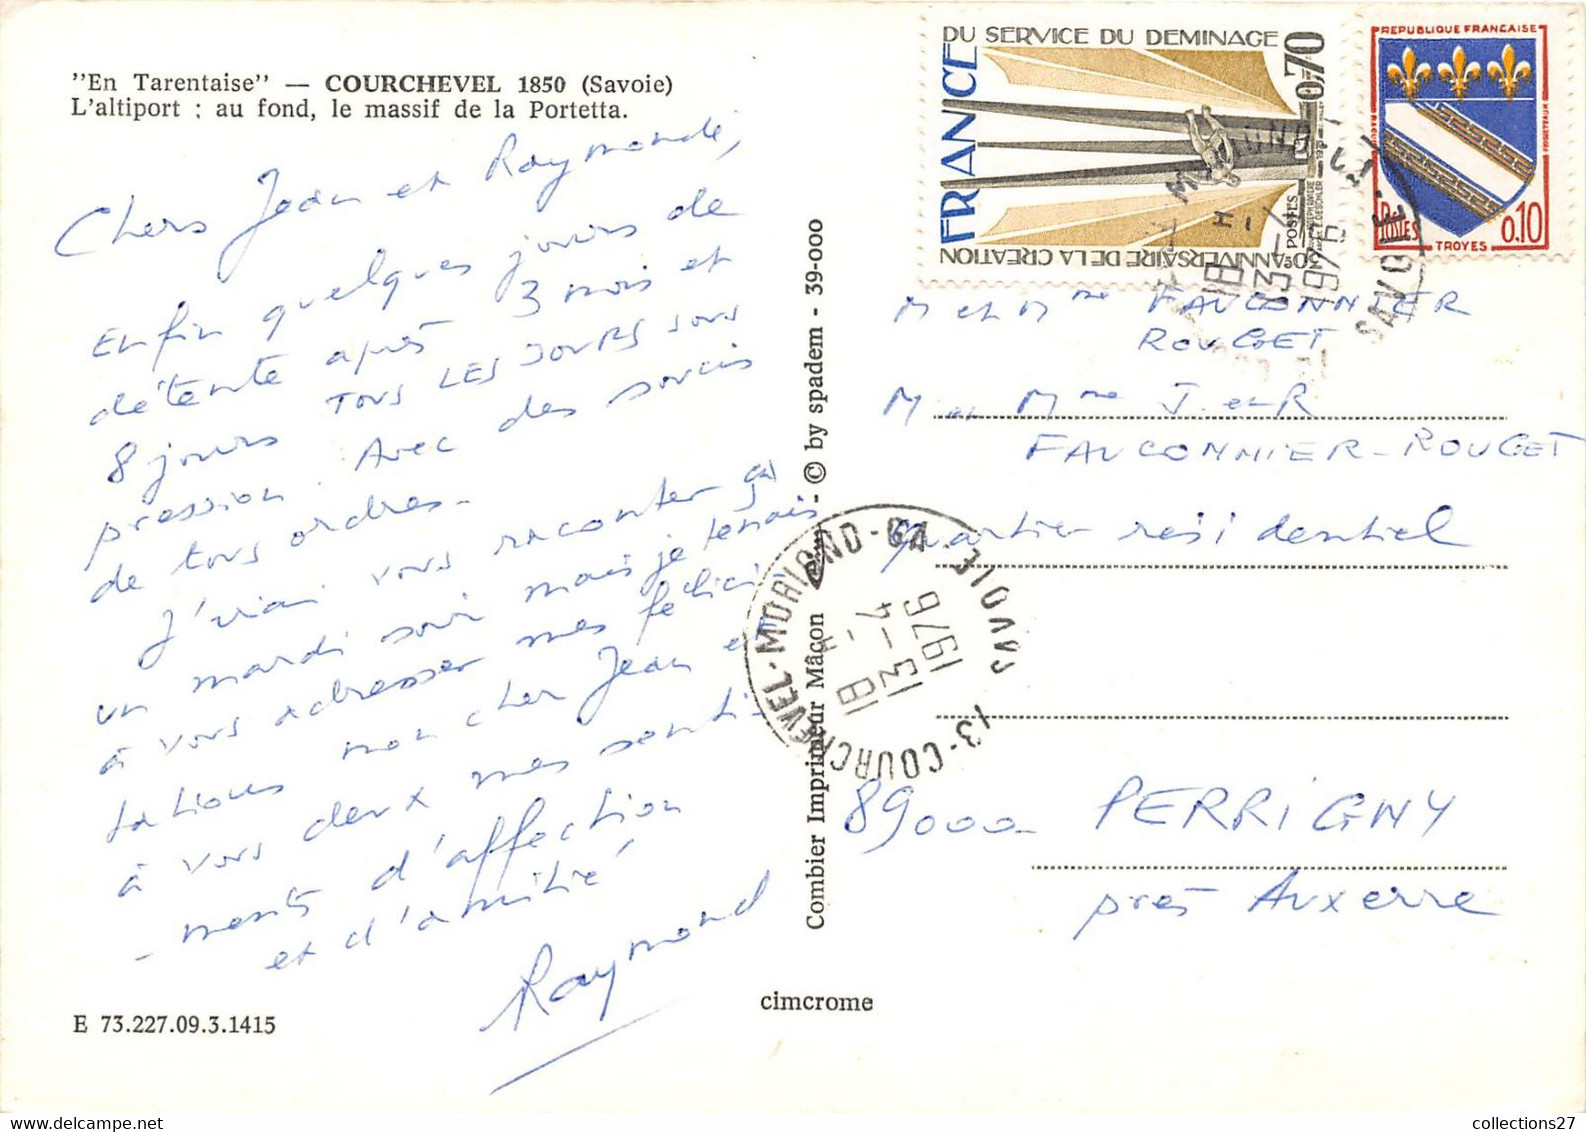 "En Tarentaise" — COURCHEVEL 1850 (Savoie)
L'altiport ; au fond, le massif de la Portetta.
Chers Jean et Raymonde,
Enfin quelques jours de
détente après 3 mois et
8 jours TOUS LES JOURS sous
pression. Avec des soucis
de tous ordres -
J'irai vous raconter ça
un mardi soir mais je tenais
à vous adresser mes félici-
tations mon cher Jean et
à vous deux mes senti-
-ments d'affection
et d'amitié
Raymond
E 73.227.09.3.1415
cimcrome
Combier Imprimeur Mâcon
- © by spadem - 39-000
DU SERVICE DU DEMINAGE
FRANCE
0,70
POSTES
30e ANNIVERSAIRE DE LA CREATION
REPUBLIQUE FRANÇAISE
POSTES
0,10
TROYES
18 H -
13 - 4
1976
SAVOIE
73 - COURCHEVEL - MORIOND - CA - SAVOIE
18 H -
13 - 4
1976
M et Mme FAUCONNIER
ROUGET
M et Mme J. et R
FAUCONNIER - ROUGET
Quartier résidentiel
89000 - PERRIGNY
près Auxerre
collections27